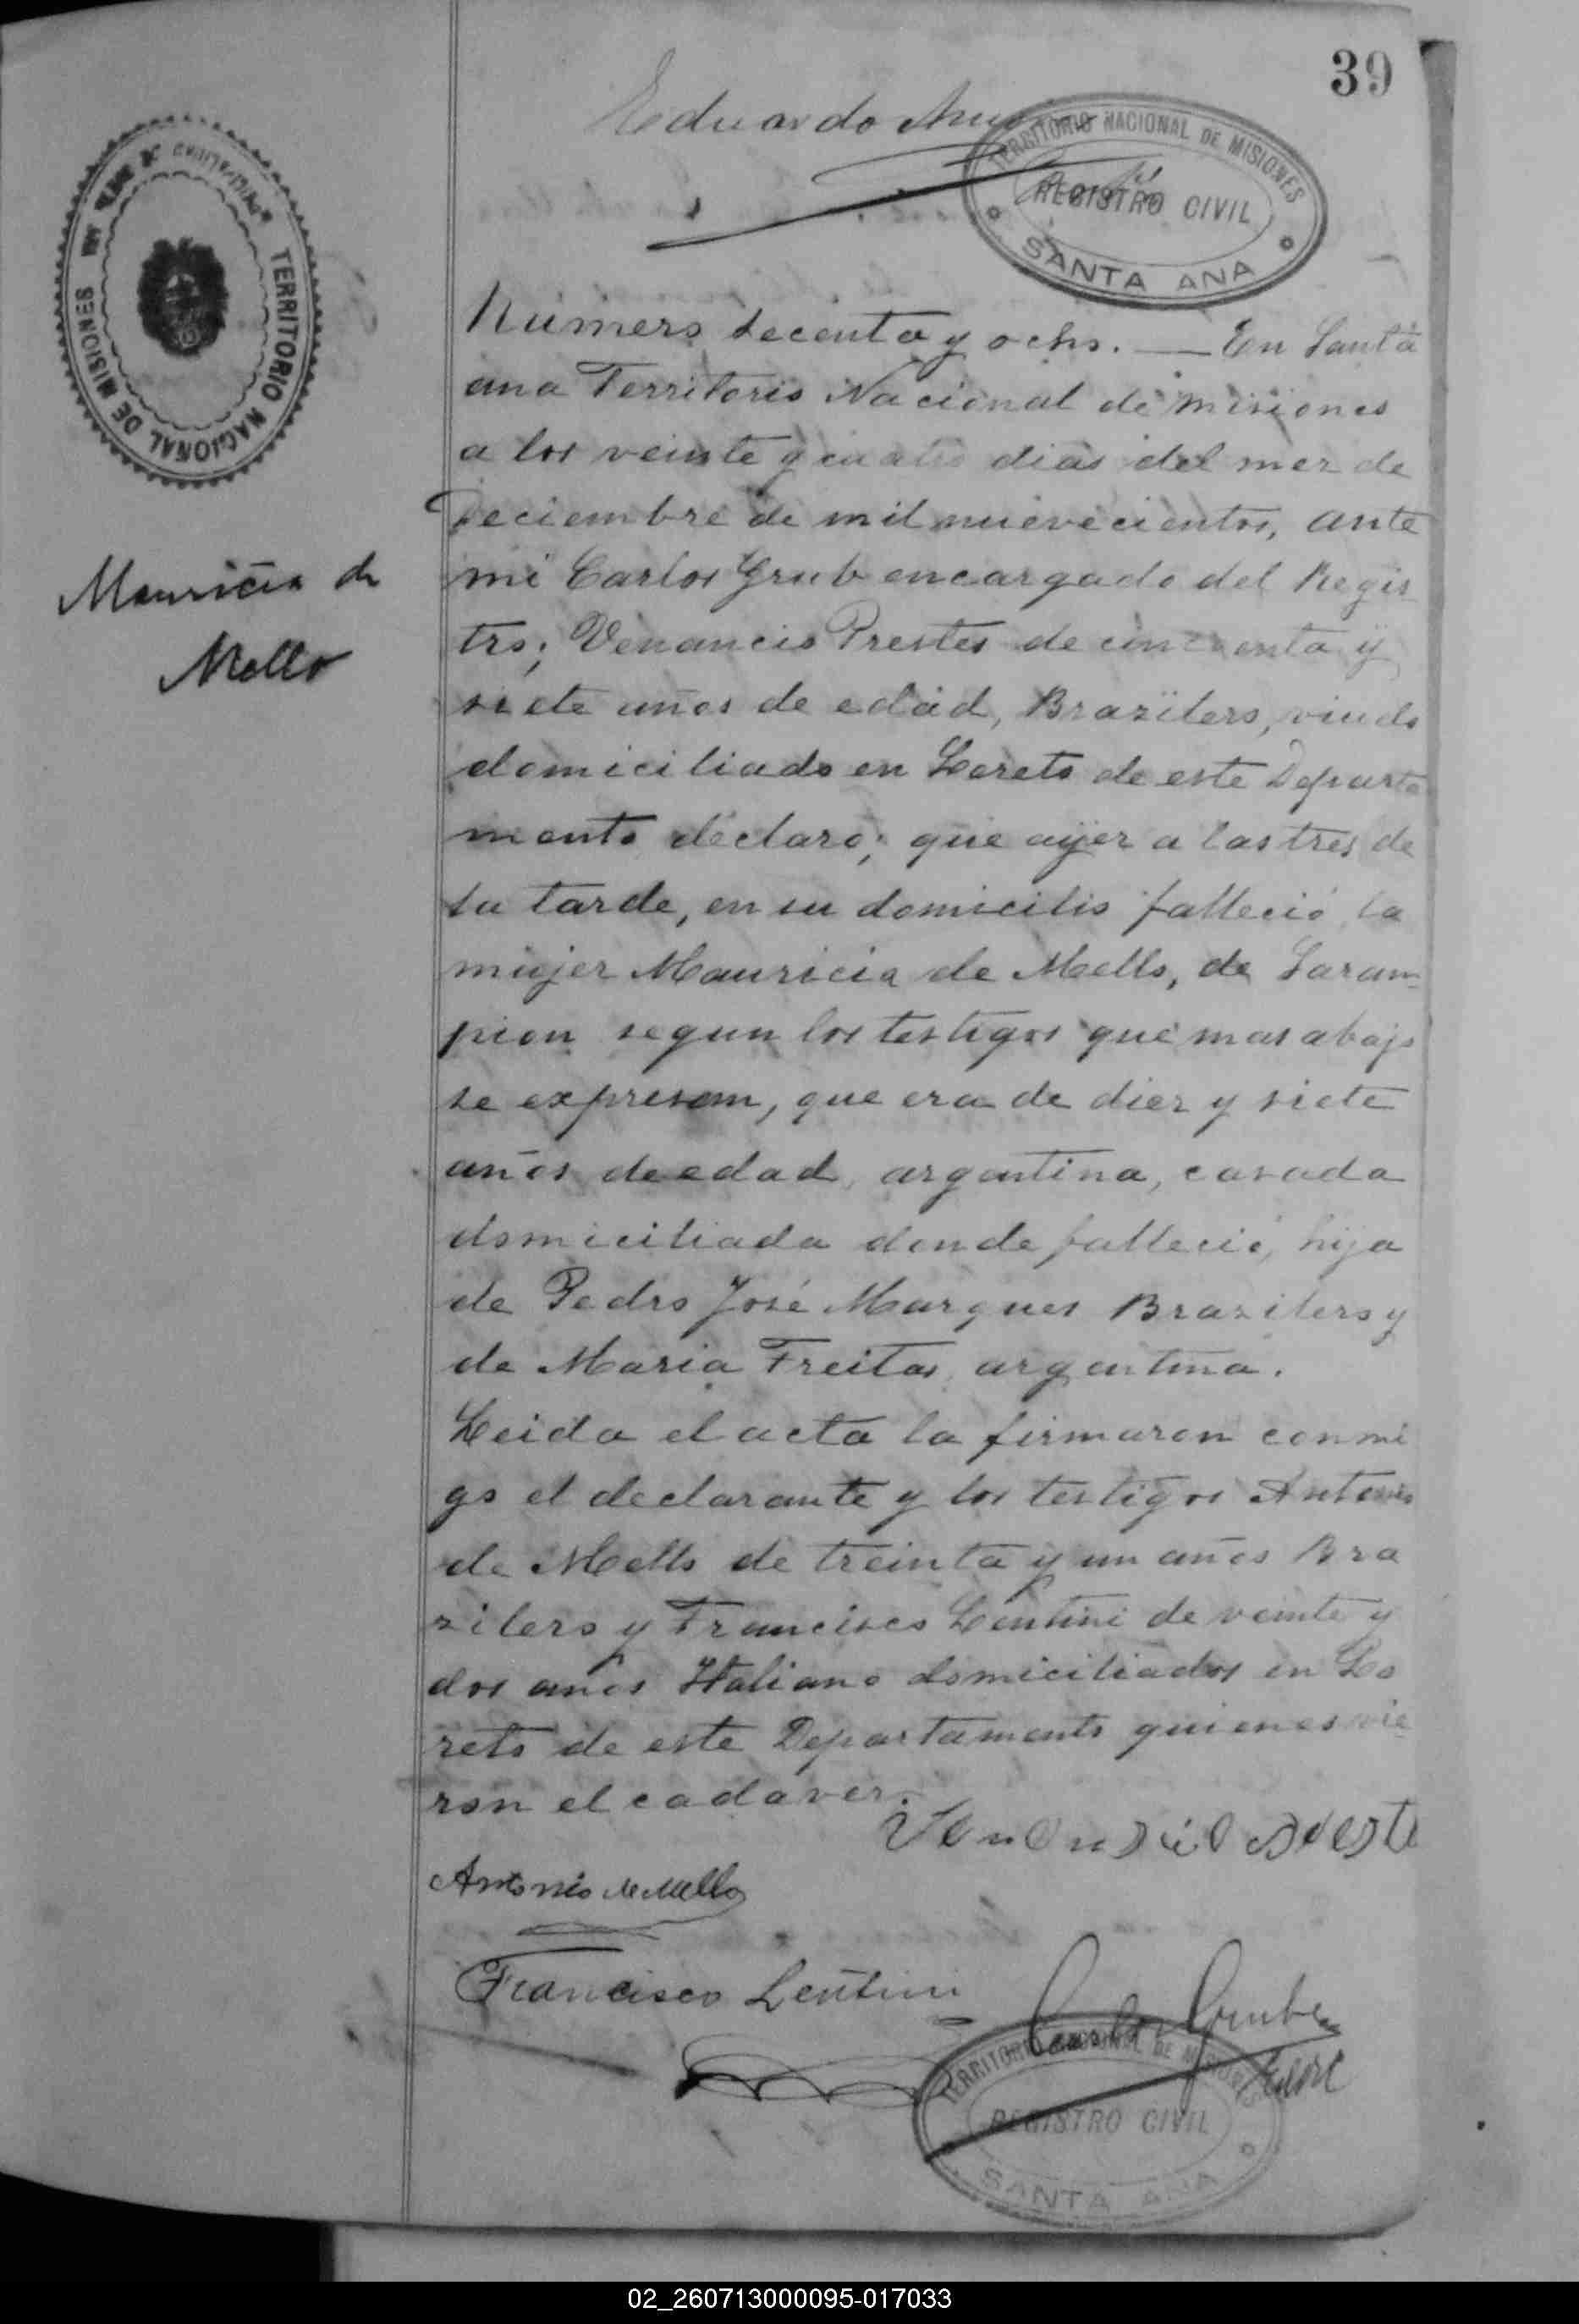 39
Eduardo
TERRITORIO NACIONAL DE MISIONES
REGISTRO CIVIL
SANTA ANA
TERRITORIO NACIONAL DE MISIONES
Mauricia de
Mello
Número secenta y ocho. — En Santa
ana Territorio Nacional de Misiones
a los veinte y cuatro dias del mez de
Deciembre de mil nuevecientos, ante
mi Carlos Grub encargado del Regis
tro; Venancio Prestes de cincuenta y
siete años de edad, Brazilero, viudo
domiciliado en Loreto de este Departa
mento declaro; que ayer a las tres de
la tarde, en su domicilio falleció la
mujer Mauricia de Mello, de Saram-
pion segun los testigos que mas abajo
se expresan, que era de diez y siete
años de edad, argentina, casada
domiciliada donde falleció, hija
de Pedro José Marques Brazilero y
de Maria Freitas, argentina.
Leida el acta la firmaron conmi
go el declarante y los testigos Antonio
de Mello de treinta y un años Bra
zilero y Francisco Lentini de veinte y
dos años Italiano domiciliados en Lo
reto de este Departamento quienes vie-
ron el cadaver.
Antonio de Mello
Francisco Lentini
Carlos Grub
TERRITORIO NACIONAL DE MISIONES
REGISTRO CIVIL
SANTA ANA
02_260713000095-017033